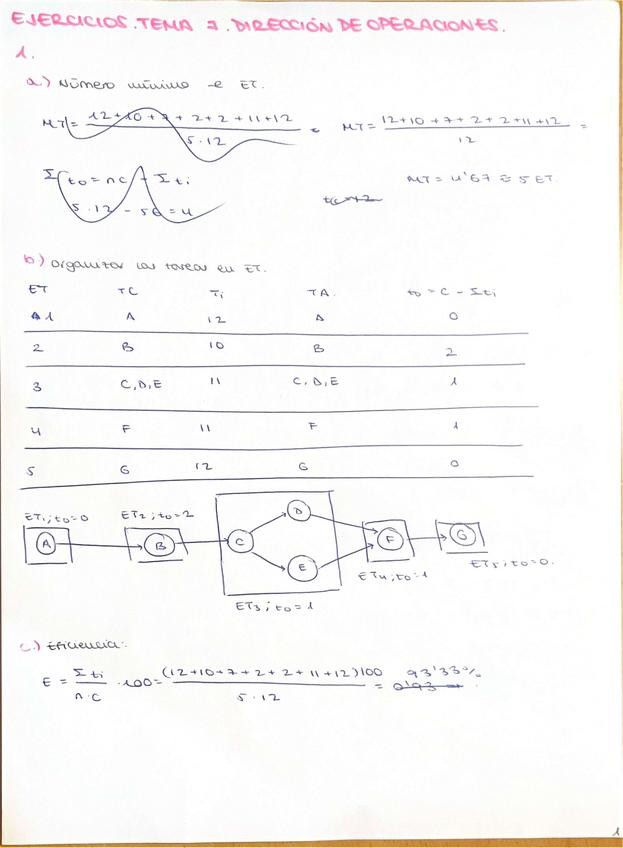 EJERCICIOS. TEMA 7. DIRECCIÓN DE OPERACIONES.
1.
a.) Número mínimo e ET.
MT = 12+10+7+2+2+11+12 / 5·12 =
MT = 12+10+7+2+2+11+12 / 12 =
Σ to = nc - Σti
5·12 - 56 = 4
MT = 4'67 ≅ 5 ET.
b) Organizar las tareas en ET.
ET TC Ti TA. to = C - Σti
1 A 12 A 0
2 B 10 B 2
3 C,D,E 11 C,D,E 1
4 F 11 F 1
5 G 12 G 0
ET1; to=0 ET2; to=2
A B C D E F G
ET4; to=1 ET5; to=0.
ET3; to=1
c.) Eficiencia:
E = Σti / n·c · 100 = (12+10+7+2+2+11+12)100 / 5·12 = 93'33%
0'93
1